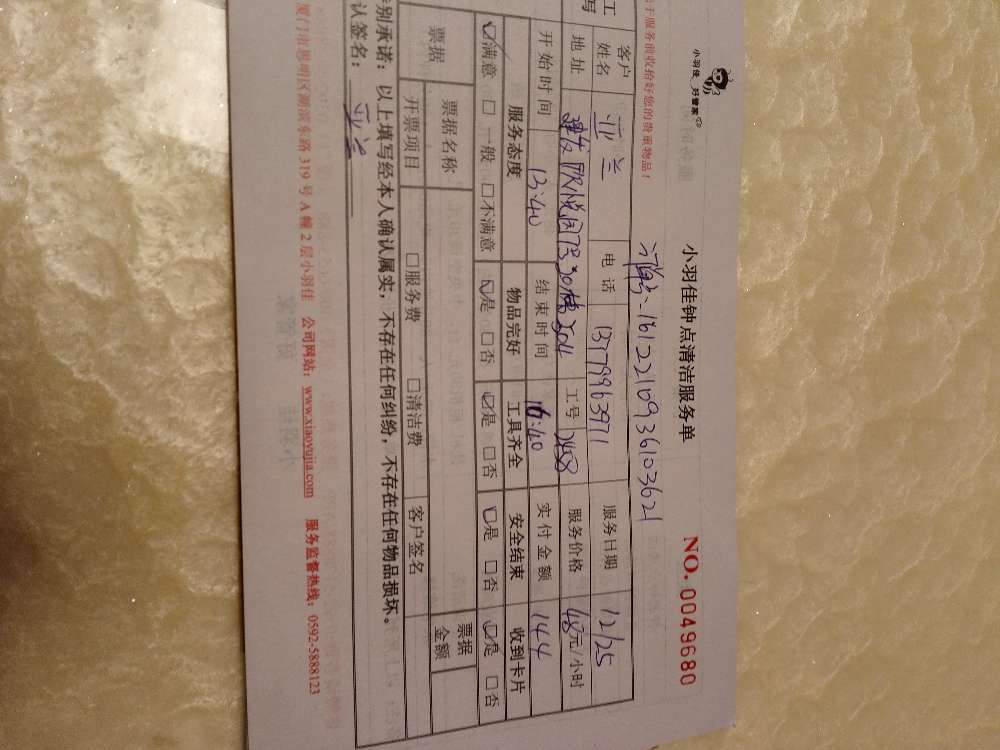 小羽佳 好管家
小羽佳钟点清洁服务单 NO. 0049680
于服务前收拾好您的贵重物品！ 1612210936103621
工 客户姓名 亚兰 电话 13779963971 服务日期 12/25
写 地址 工号 服务价格 48元/小时
开始时间 13:40 结束时间 16:40 实付金额 144
服务态度 物品完好 工具齐全 安全结束 收到卡片
☑满意 □一般 □不满意 ☑是 □否 ☑是 □否 ☑是 □否 ☑是 □否
票据 票据名称 票据金额
开票项目 □服务费 □清洁费 客户签名
别承诺：以上填写经本人确认属实，不存在任何纠纷，不存在任何物品损坏。
认签名：亚兰
厦门市思明区湖滨东路 319 号 A 幢 2 层小羽佳 公司网站：www.xiaoyujia.com 服务监督热线：0592-5888123